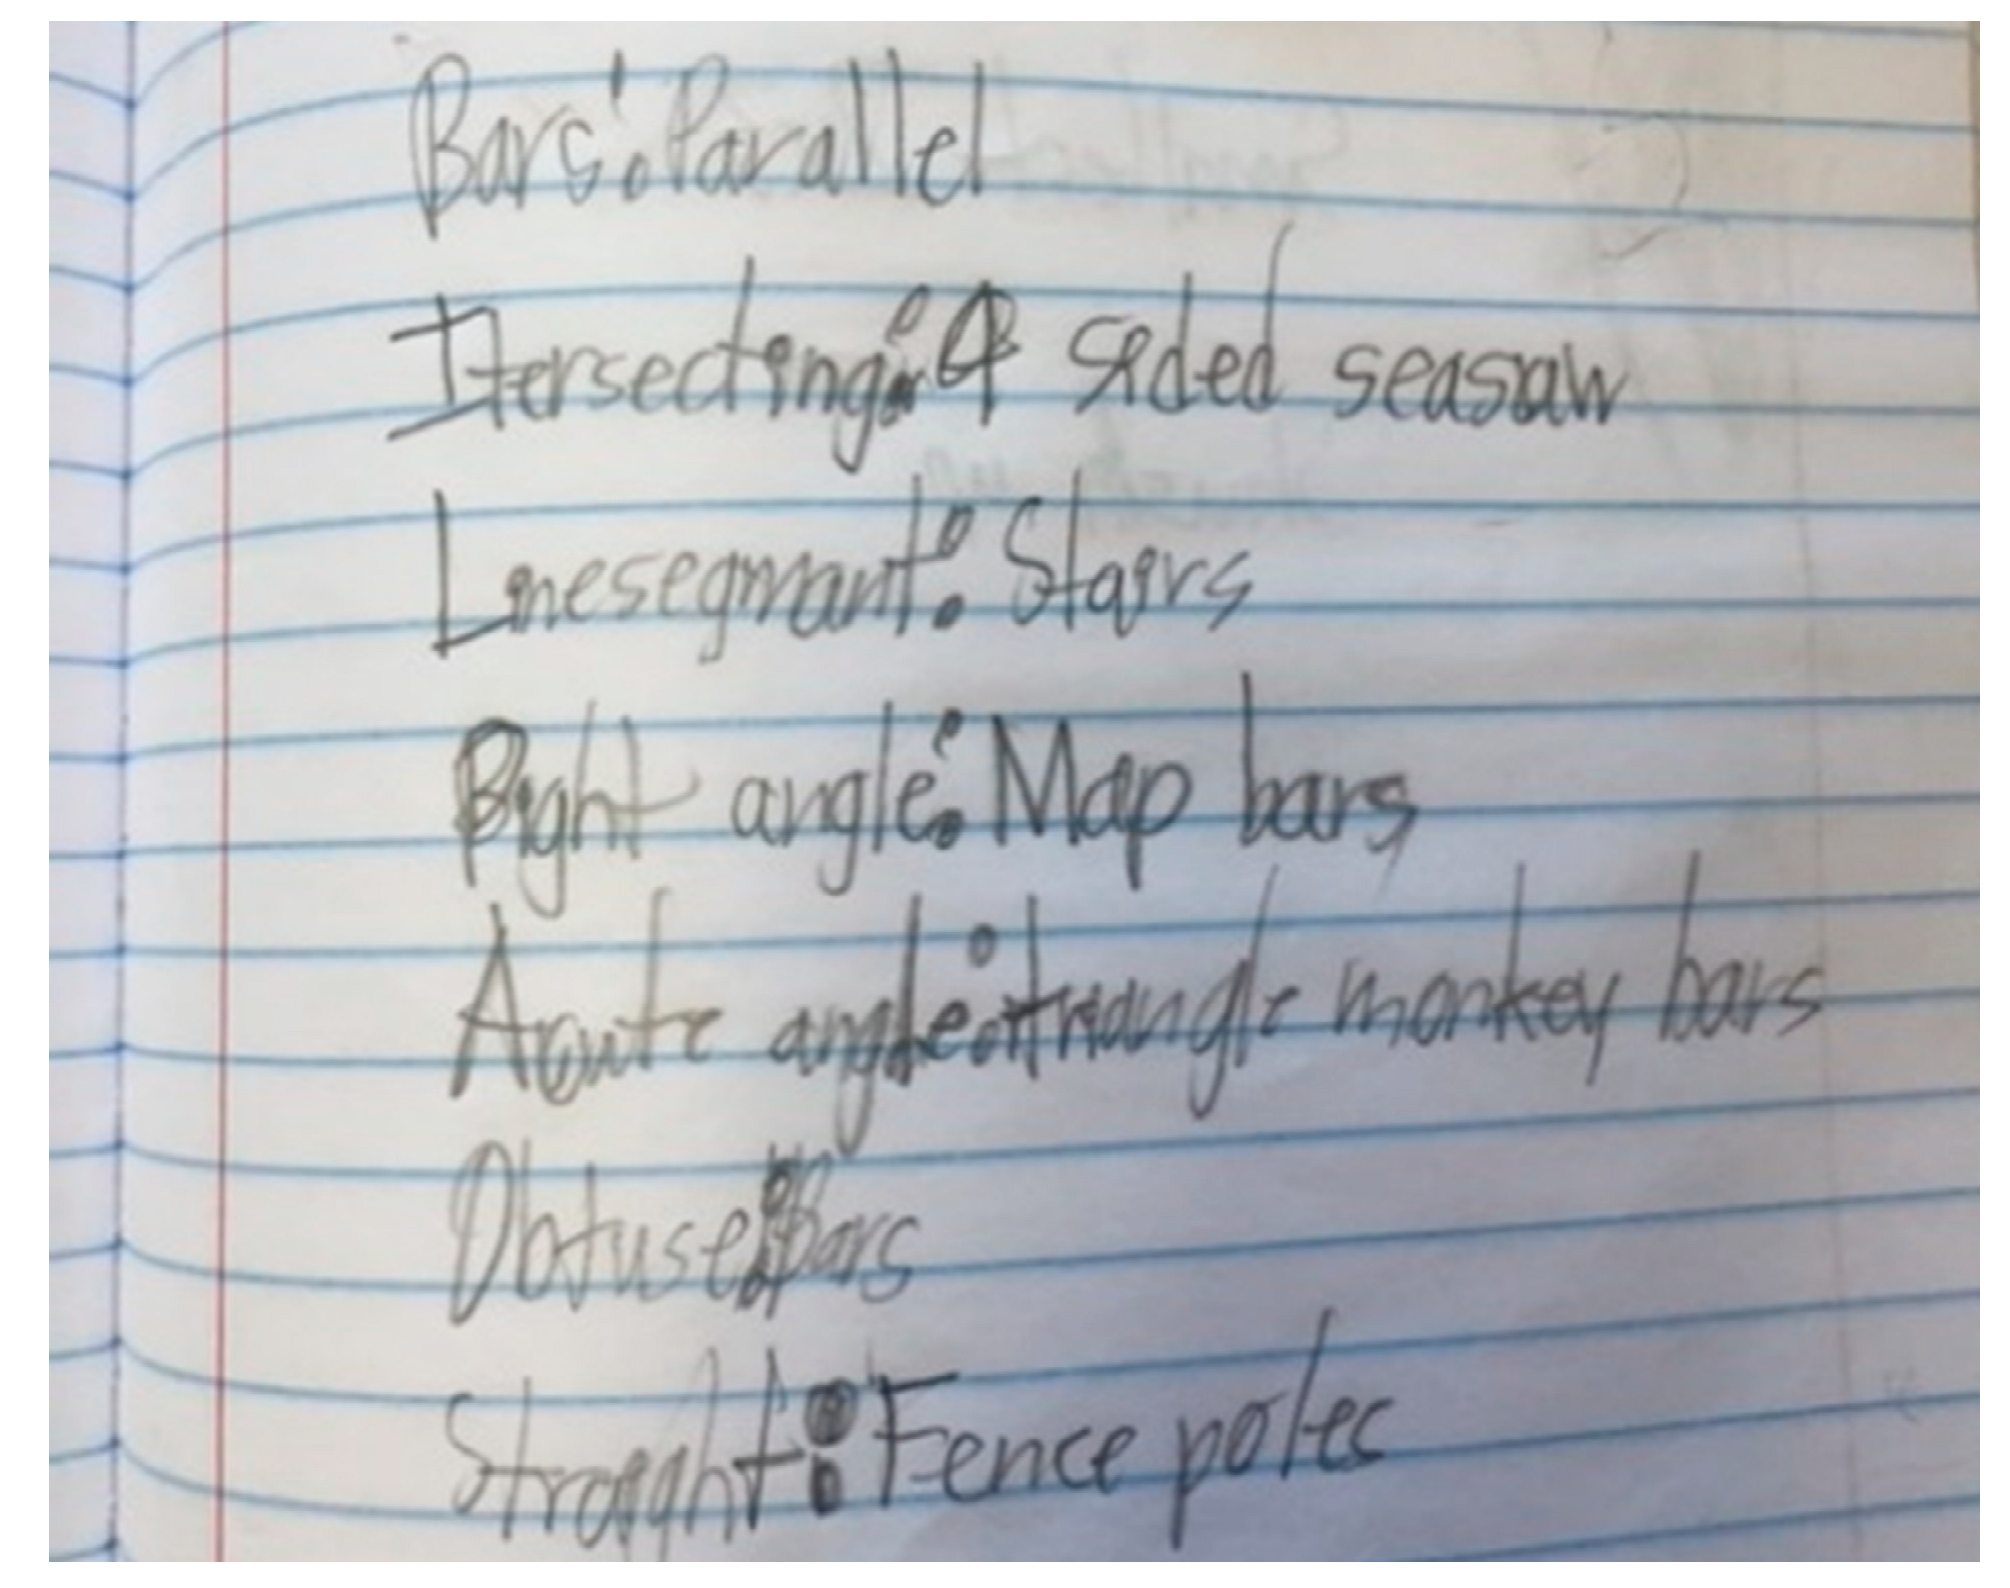 Bars: Parallel
Itersecting: 4 sided seasaw
Linesegmant: Stairs
Right angle: Map bars
Acute angle: triangle monkey bars
Obtuse: Bars
Straight: Fence poles